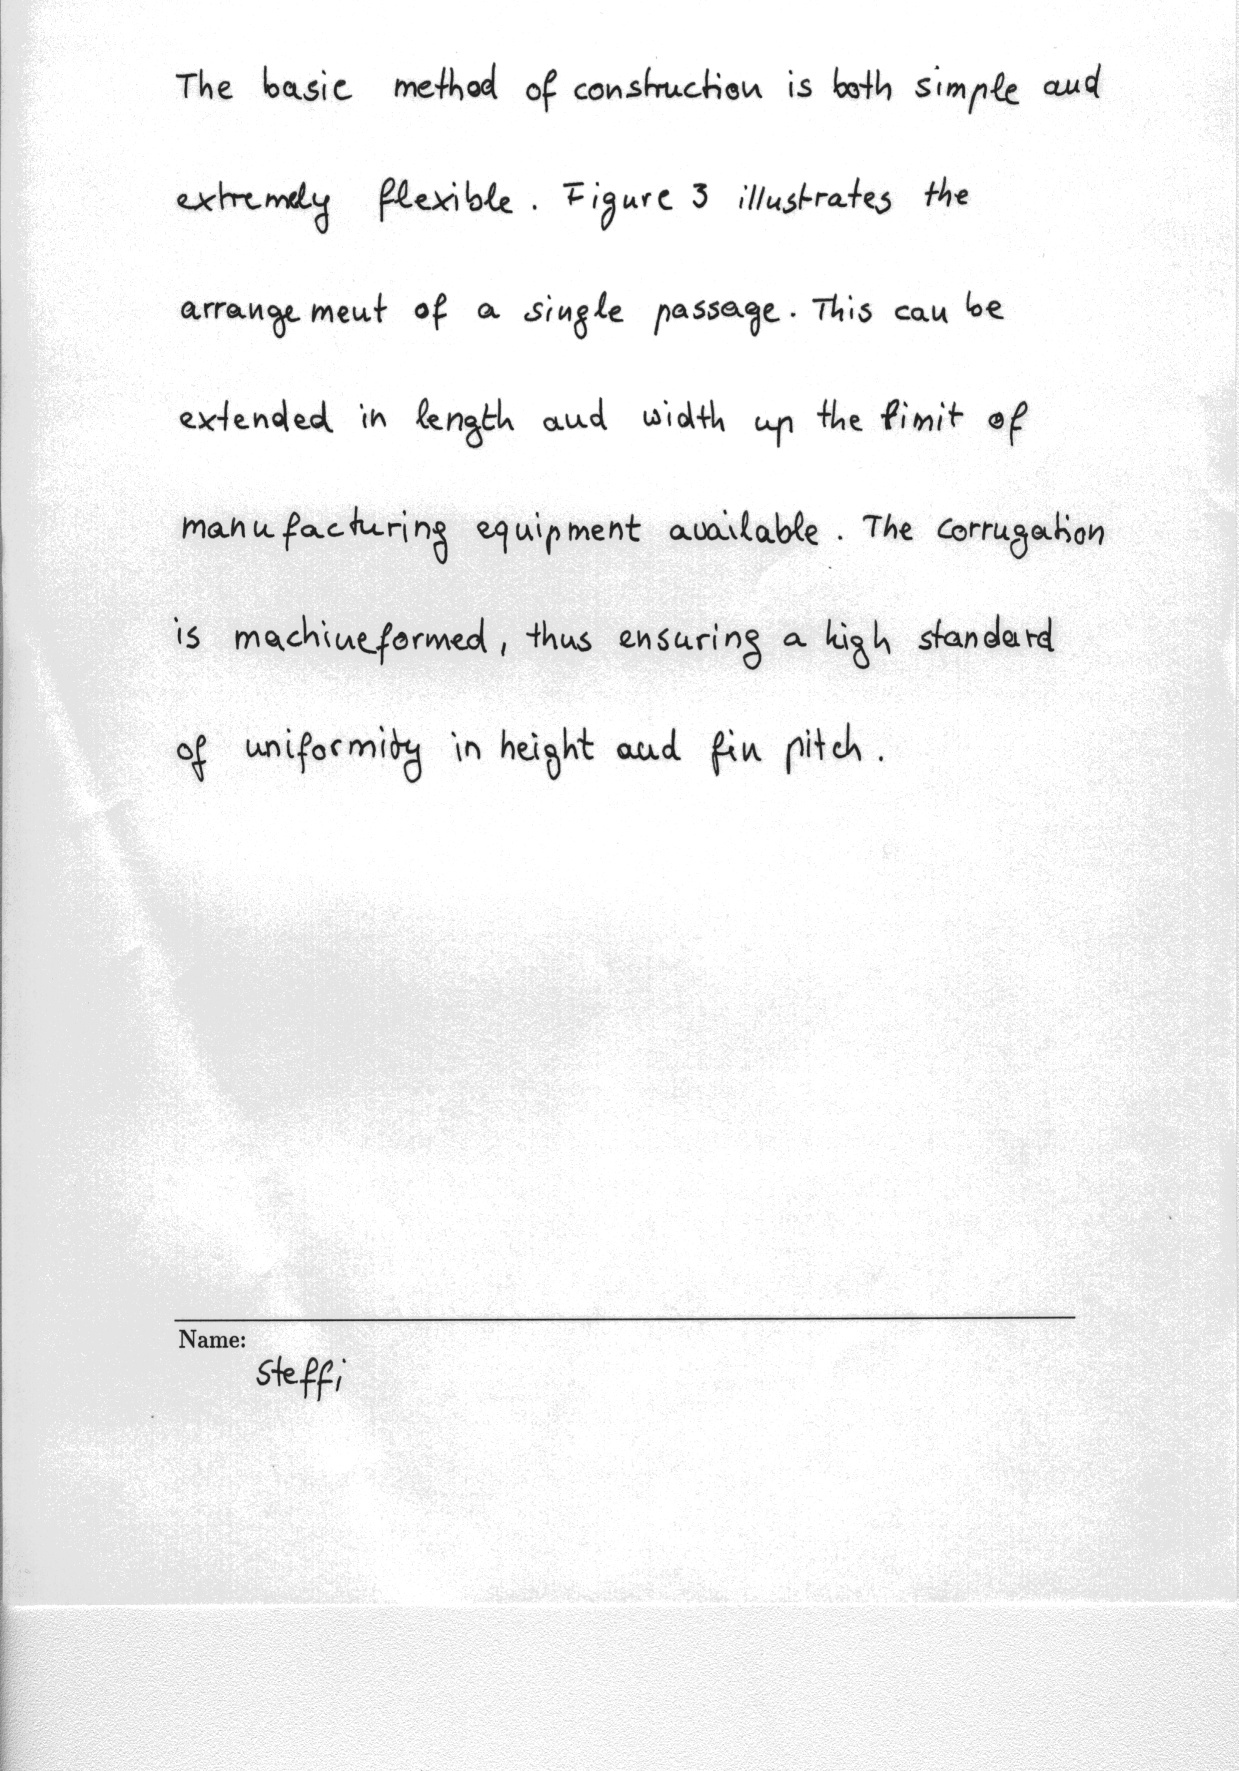 The basic method of construction is both simple and
extremely flexible. Figure 3 illustrates the
arrangement of a single passage. This can be
extended in length and width up the limit of
manufacturing equipment available. The corrugation
is machineformed, thus ensuring a high standard
of uniformity in height and fin pitch.
Name:
Steffi